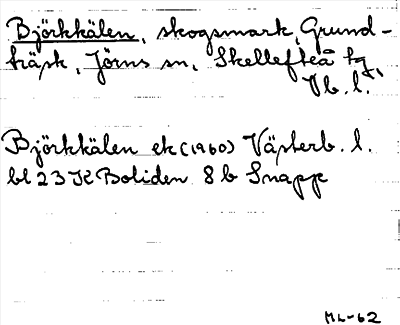 Björkkälen, skogsmark, Grund-
träsk, Jörns sn, Skellefteå tg,
Vb. l.
Björkkälen ek (1960) Västerb. l.
bl 23 K Boliden 8 b Snapp
ML-62